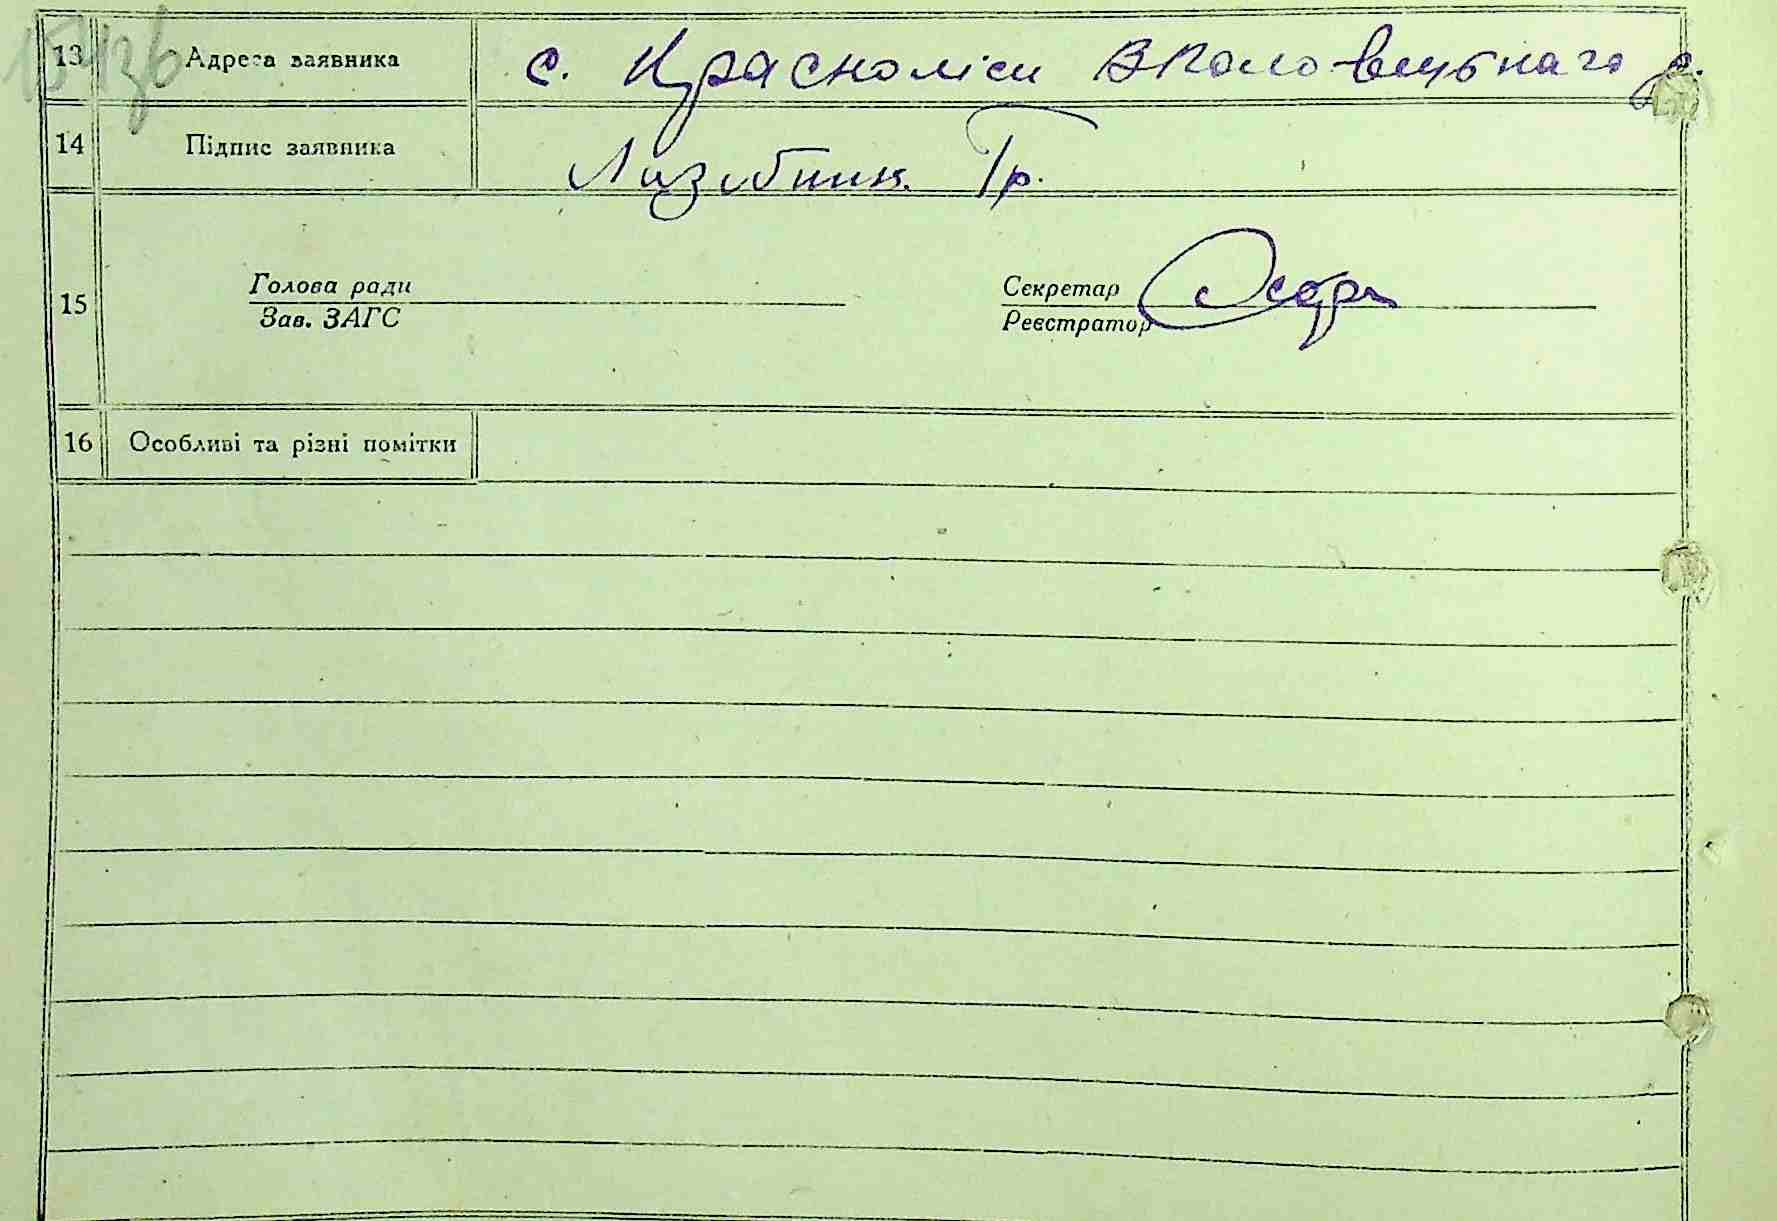 13 Адреса заявника с. Красноліси
14 Підпис заявника Гр.
15
Голова ради
Зав. ЗАГС
Секретар
Реєстратор
16 Особливі та різні помітки